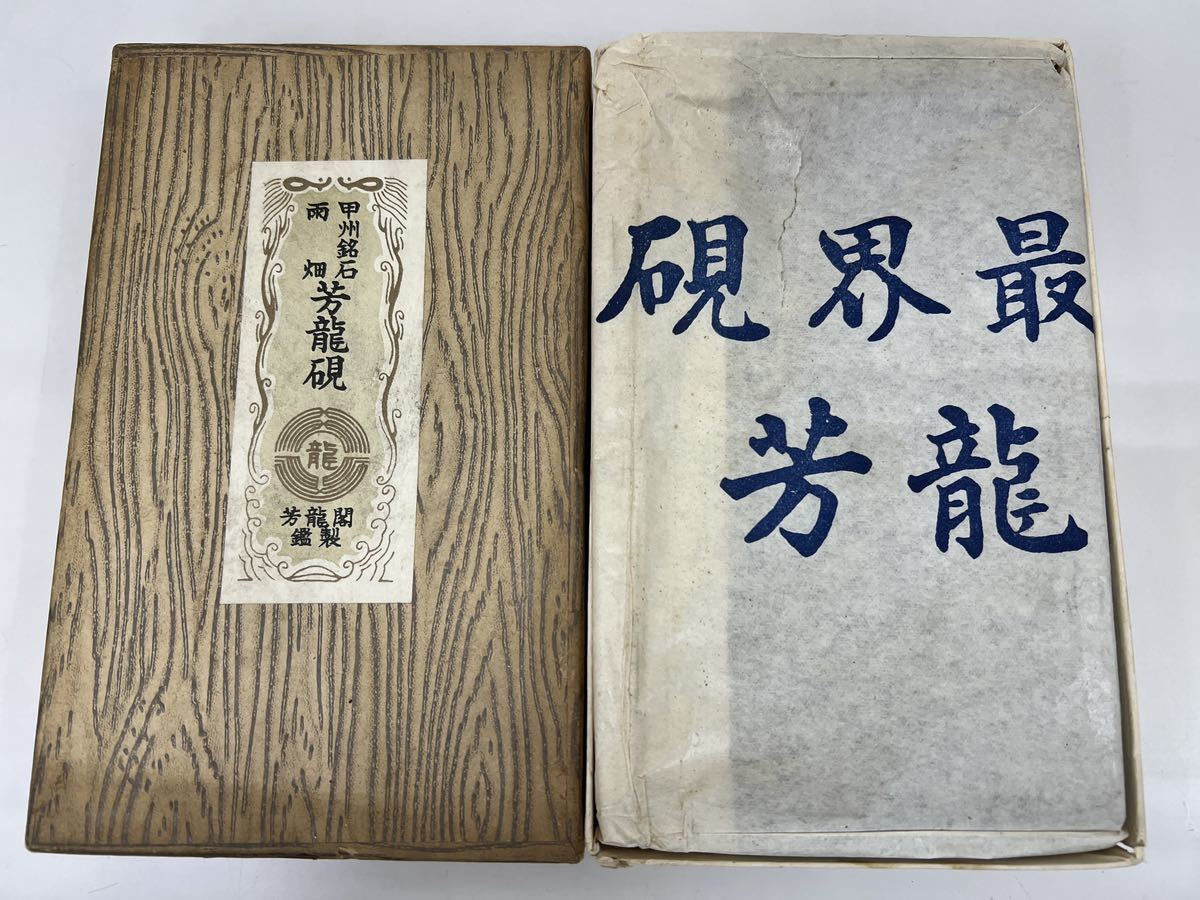 甲州銘石
雨畑
芳龍硯
龍
芳龍閣
鑑製
最界硯
龍芳